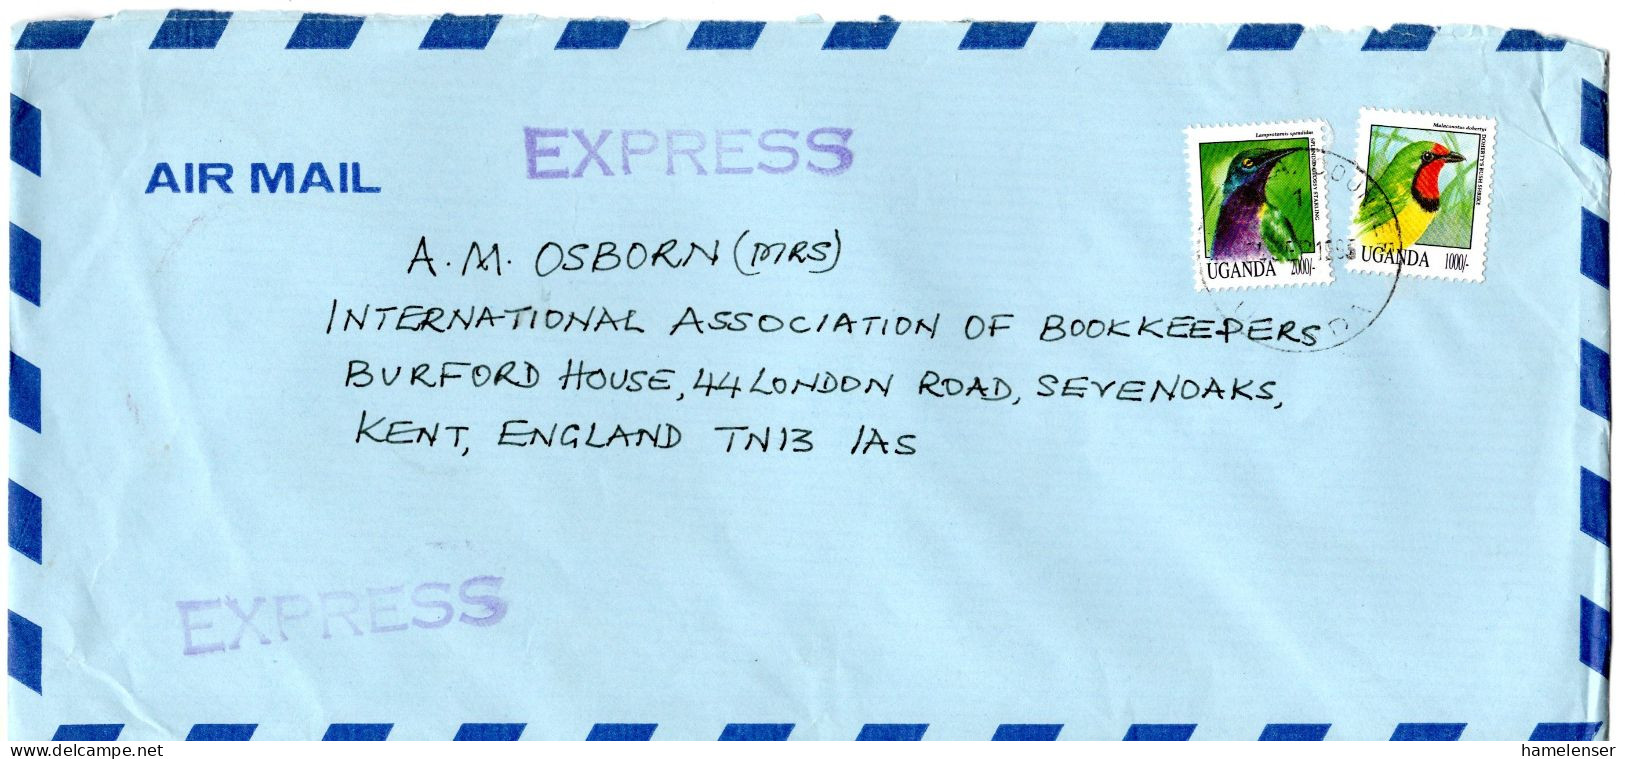 EXPRESS
AIR MAIL
Lamprotornis splendidus
SPLENDID GLOSSY STARLING
UGANDA 2000/-
Malaconotus dohertyi
DOHERTY'S BUSH SHRIKE
UGANDA 1000/-
A.M. OSBORN (MRS)
INTERNATIONAL ASSOCIATION OF BOOKKEEPERS
BURFORD HOUSE, 44 LONDON ROAD, SEVENOAKS,
KENT, ENGLAND TN13 1AS
EXPRESS
delcampe.net
hamelenser